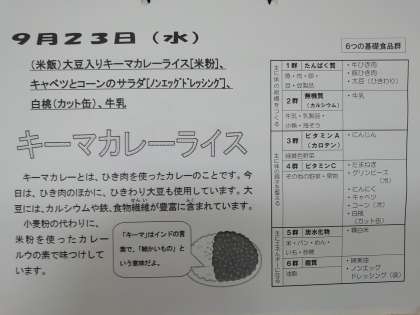 9月23日(水)
(米飯)大豆入りキーマカレーライス[米粉]、
キャベツとコーンのサラダ[ノンエッグドレッシング]、
白桃(カット缶)、牛乳
キーマカレーライス
キーマカレーとは、ひき肉を使ったカレーのことです。今
日は、ひき肉のほかに、ひきわり大豆も使用しています。大
豆には、カルシウムや鉄、食物繊維が豊富に含まれています。
小麦粉の代わりに、
米粉を使ったカレー
ルウの素で味つけして
います。
「キーマ」はインドの言
葉で、「細かいもの」と
いう意味だよ。
6つの基礎食品群
主に体の組織をつくる
1群 たんぱく質
魚・肉・卵・
豆・豆製品
・牛ひき肉
・豚ひき肉
・大豆(ひきわり)
2群 無機質
(カルシウム)
牛乳・乳製品・
小魚・海そう
・牛乳
主に体の調子を整える
3群 ビタミンA
(カロテン)
緑黄色野菜
・にんじん
4群 ビタミンC
その他の野菜・果物
・たまねぎ
・グリンピース
(冷)
・にんにく
・キャベツ
・コーン(冷)
・白桃
(カット缶)
主にエネルギーになる
5群 炭水化物
米・パン・めん・
いも・砂糖
・精白米
6群 脂質
油脂
・ノンエッグ
ドレッシング(袋)